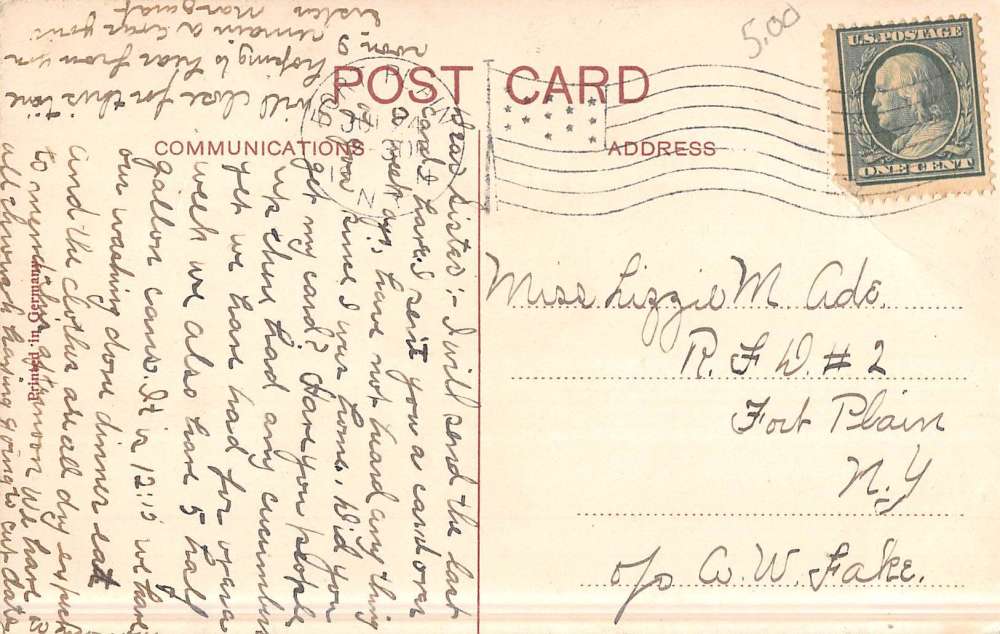 POST CARD
COMMUNICATIONS
ADDRESS
U.S. POSTAGE
ONE CENT
5.00
Miss Lizzie M Ade.
R.F.D. #2
Fort Plain
N.Y
c/o C. W. Fake.
Printed in Germany
Dear Sister:- I will send the last
card I have. I sent you a card over
a week ago, have not heard any thing
of you since I was home. Did you
get my card? Have you people
up there had any cucumbers
yet we have had for over a
week we also have 5 half
gallon cans. It is 12:15 we have
our washing done dinner eat
and the clothes are all dry expect
to mend this afternoon We have is
all through haying going to cut oats
Will close for this time
hoping to hear from you
soon. I
remain as ever your
sister Margaret